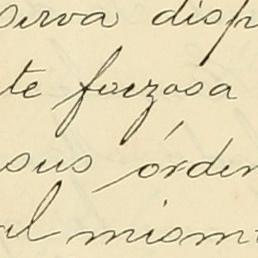 serva disp
te forzosa
sus órden
al mism